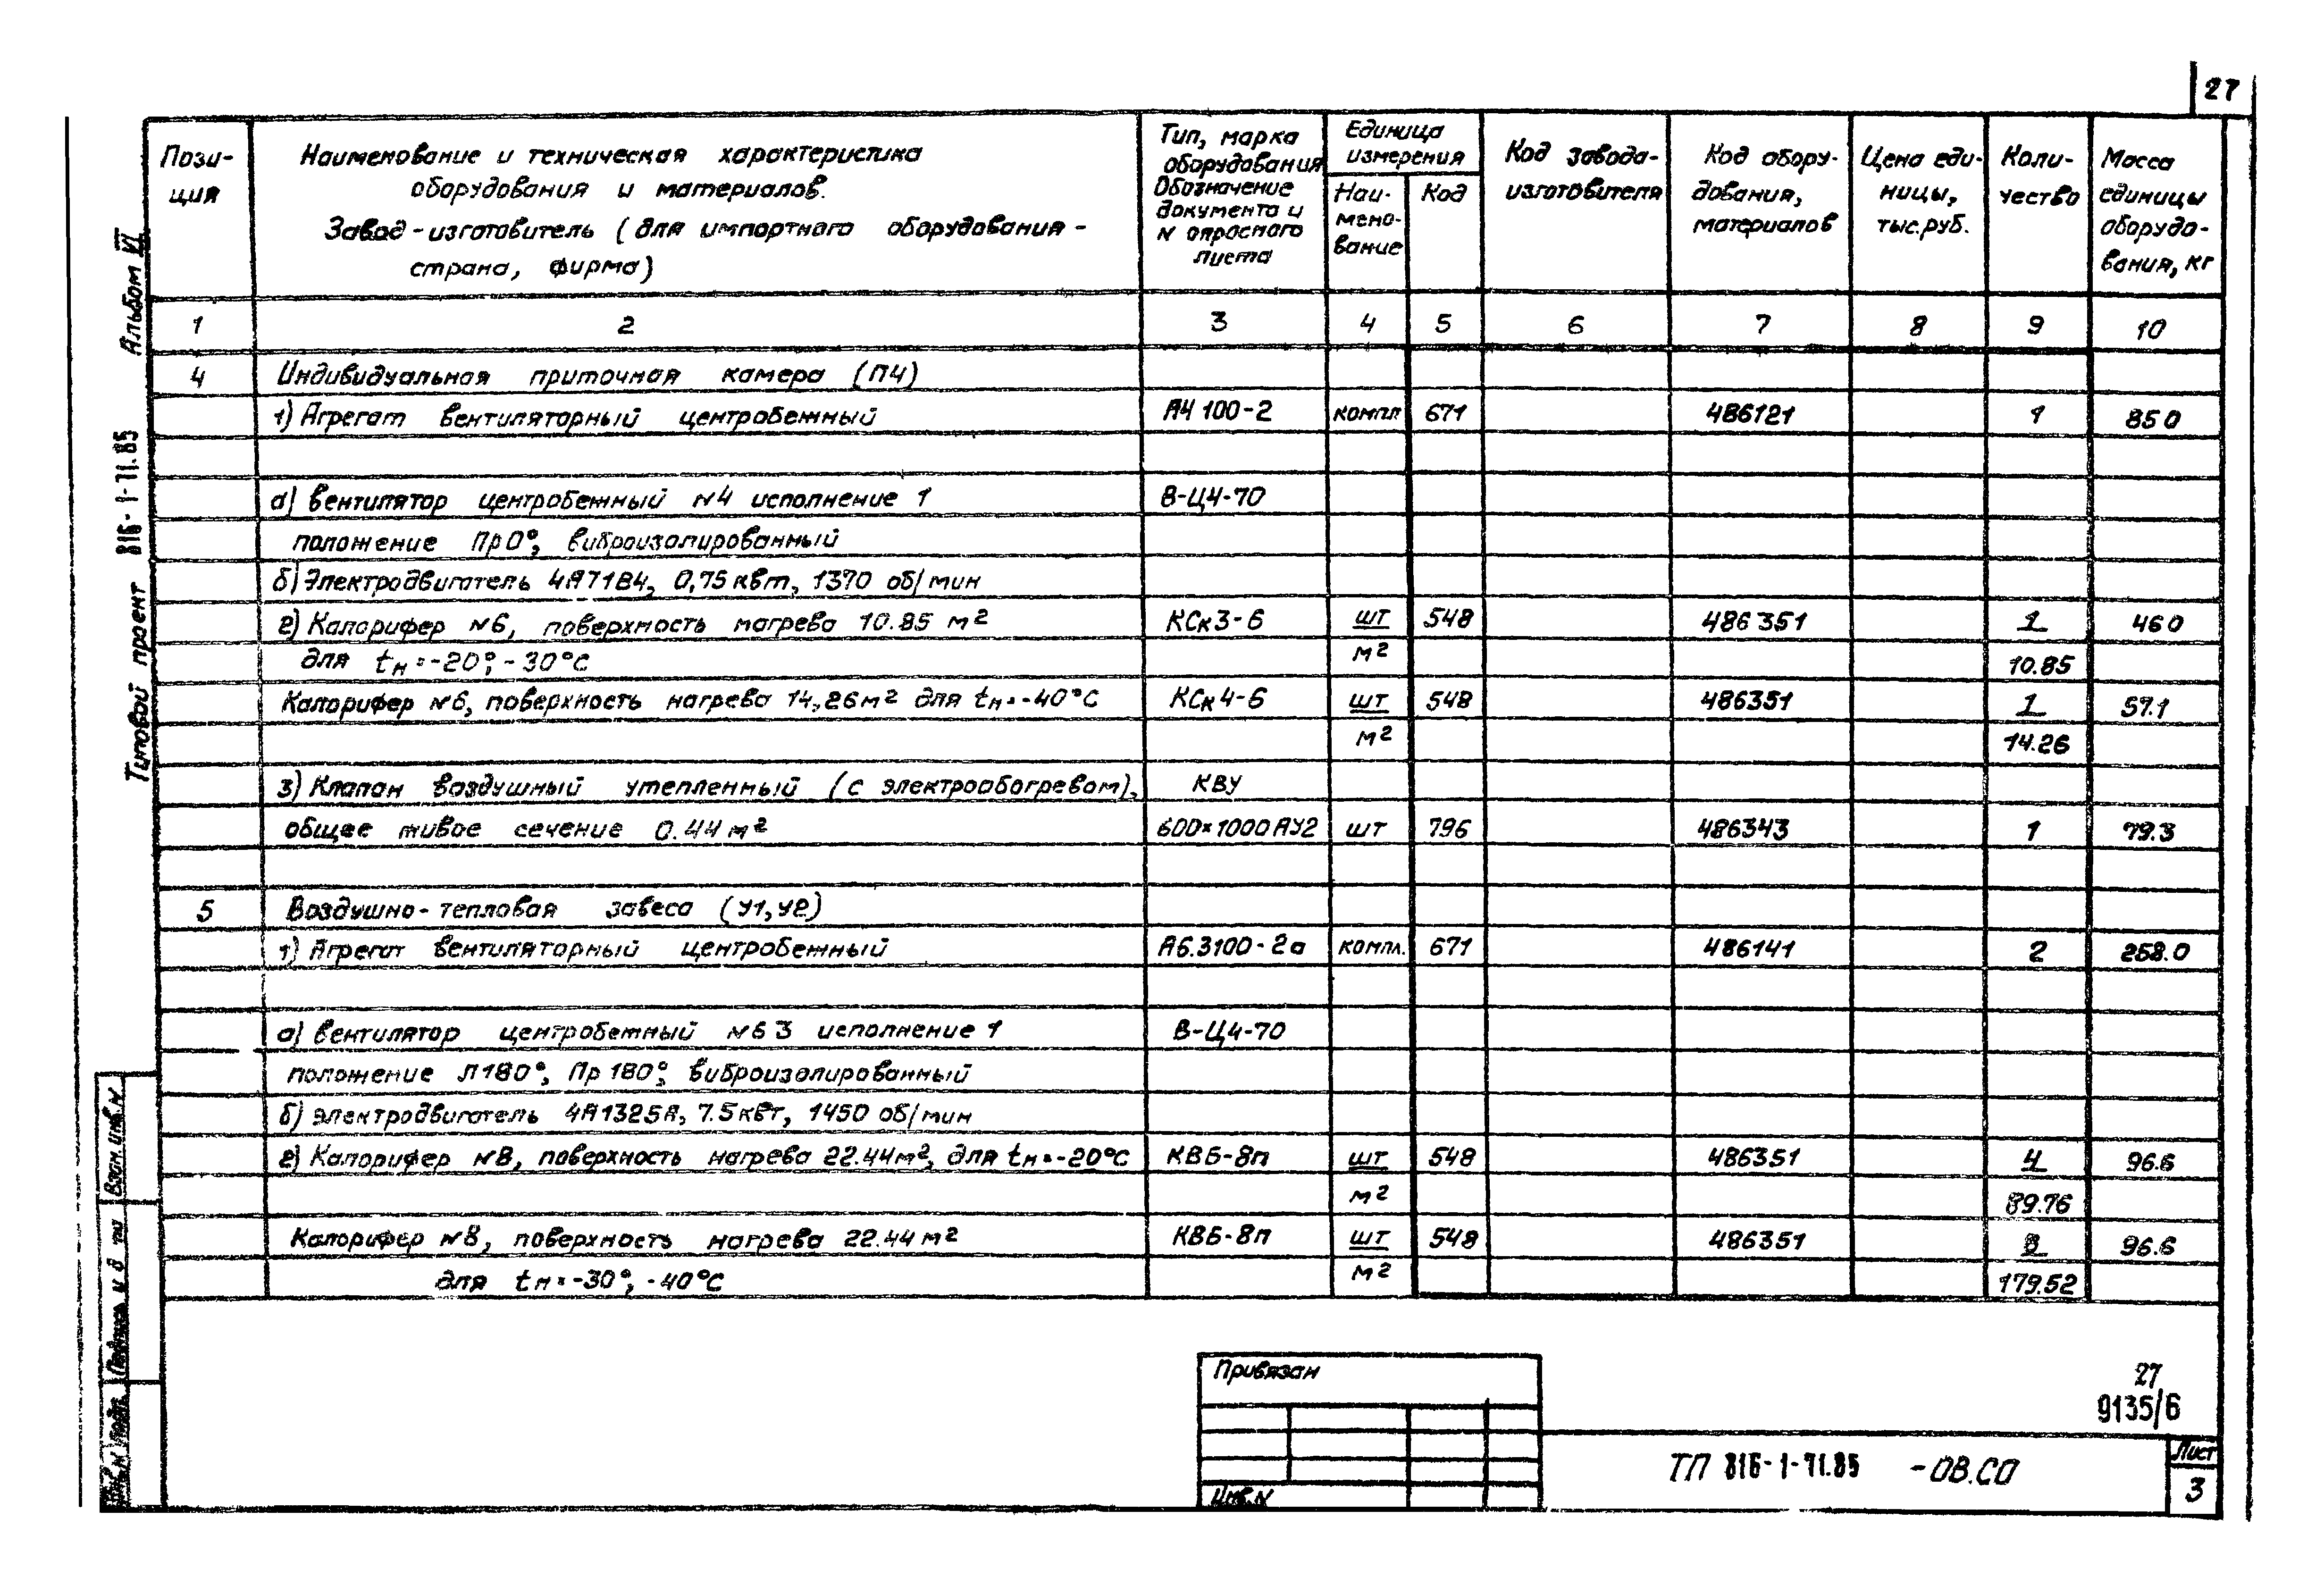 27
Пози-
ция
Наименование и техническая характеристика
оборудования и материалов.
Завод-изготовитель (для импортного оборудования -
страна, фирма)
Тип, марка
оборудования
Обозначение
документа и
N опросного
листа
Единица
измерения
Наи-
мено-
вание
Код
Код завода-
изготовителя
Код обору-
дования,
материалов
Цена еди-
ницы,
тыс.руб.
Коли-
чество
Масса
единицы
оборудо-
вания, кг
1 2 3 4 5 6 7 8 9 10
4 Индивидуальная приточная камера (П4)
1) Агрегат вентиляторный центробежный А4 100-2 компл 671 486121 1 85 0
а) вентилятор центробежный N4 исполнение 1 В-Ц4-70
положение Пр0°, виброизолированный
б) Электродвигатель 4А71В4, 0,75 квт, 1370 об/мин
2) Калорифер N6, поверхность нагрева 10.85 м2 КСк3-6 шт 548 486351 1 46 0
для tн=-20°,-30°С м2 10.85
Калорифер N6, поверхность нагрева 14,26м2 для tн=-40°С КСк4-6 шт 548 486351 1 57.1
м2 14.26
3) Клапан воздушный утепленный (с электрообогревом), КВУ
общее живое сечение 0.44 м2 600×1000АУ2 шт 796 486343 1 79.3
5 Воздушно-тепловая завеса (У1,У2)
1) Агрегат вентиляторный центробежный А6.3100-2а компл. 671 486141 2 258.0
а) вентилятор центробежный N6 3 исполнение 1 В-Ц4-70
положение Л180°, Пр 180°, виброизолированный
б) электродвигатель 4А132SА, 7.5квт, 1450 об/мин
2) Калорифер N8, поверхность нагрева 22.44м2, для tн=-20°С КВБ-8п шт 548 486351 4 96.6
м2 89.76
Калорифер N8, поверхность нагрева 22.44 м2 КВБ-8п шт 548 486351 8 96.6
для tн=-30°,-40°С м2 179.52
Альбом VI
Типовой проект 816-1-71.85
Взам.инв.N
Подпись и д та
Инв.N подл.
Привязан
Инв.N
27
9135/6
ТП 816-1-71.85 -ОВ.СО
Лист
3